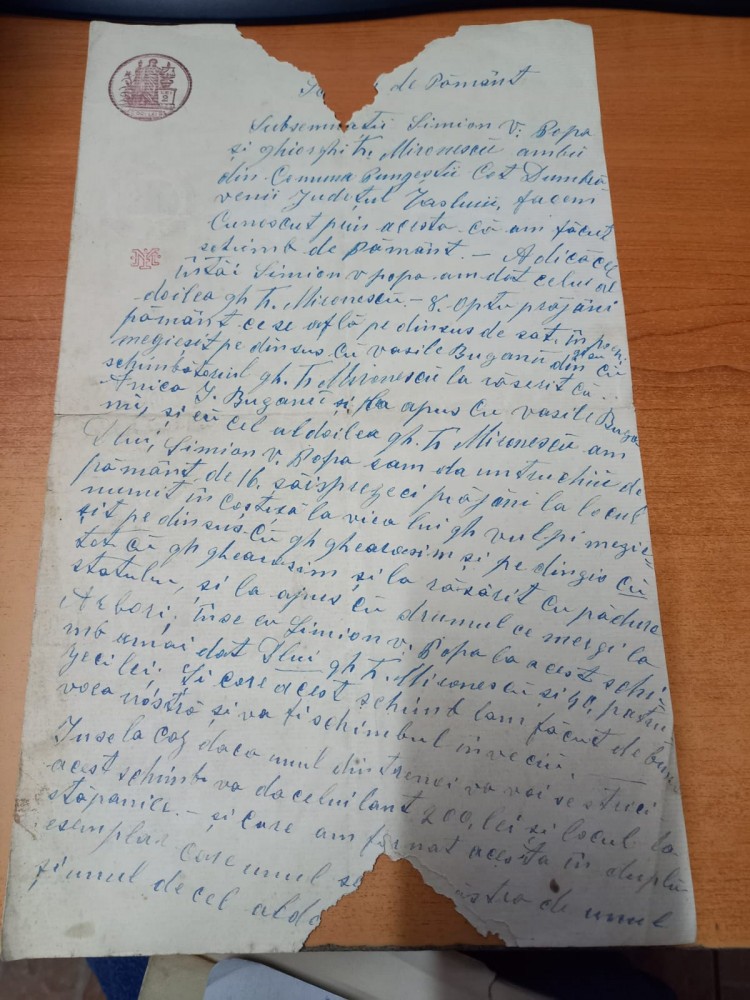 de Pământ
Subsemnatii Simion V. Popa
și ghiorghi Tr. Mironescu ambii
din Comuna Pungeștii Cot. Dumbră
venii Județul Vasluii, facem
Cunoscut prin acesta că am făcut
schimb de Pământ. – Adică cel
întăi Simion v popa am dat celui al
doilea gh Tr. Mironescu – 8. Optu prăjini
pământ ce se află pe dinsus de sat, în
megieșit pe dinsus cu vasile Buganii din cu
schimbătoriul gh. Tr Mironescu la răserit cu
Anica I. Buganii și la apus cu vasile Buga
nii, și eu cel aldoilea gh. Tr Mironescu am
Dlui, Simion v. Popa sam da un truchiu de
pământ de 16. săisprezeci prăjini la locul
numit în Costiză la viea lui gh vulpi megie-
șit pe dinsus cu gh gherasim și pe dingio cu
tot cu gh gherasim și la răsărit cu pădure
statului, și la apus cu drumul ce mergi la
Arbori; Însă eu Simion v. Popa la acest schi
mb amai dat Dlui gh Tr. Mironescu și 40, patru
zeci lei; Și care acest schimb lam făcut de buna
voea nóstră și va fi schimbul în vecii;
Însă la caz daca unul din trenoi va voi se strici
acest schimb va da celuilant 200, lei și locul la
stăpanire. – și care am format acesta în duplu
exemplar care unul de unul
și unul de cel aldo